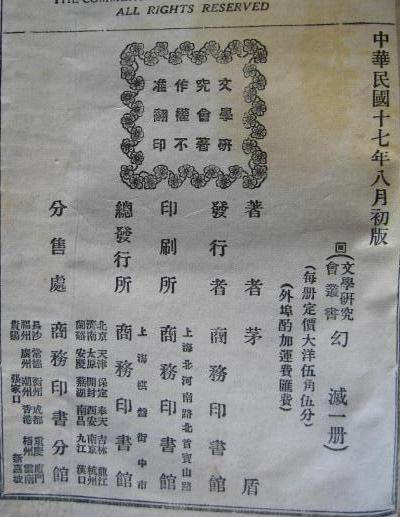 ALL RIGHTS RESERVED
中華民國十七年八月初版
文學研
究會著
作權不
准翻印
文學研究
會叢書 幻滅一册)
(每册定價大洋伍角伍分)
(外埠酌加運費匯費)
著者 茅盾
發行者 商務印書館
上海北河南路北首寶山路
印刷所 商務印書館
上海棋盤街中市
總發行所 商務印書館
北京 天津 保定 奉天 吉林 龍江
濟南 太原 開封 西安 南京 杭州
蘭谿 安慶 蕪湖 南昌 九江 漢口
分售處 商務印書分館
長沙 常德 衡州 成都 重慶 廈門
福州 廣州 潮州 香港 梧州 雲南
貴陽 張家口 新嘉坡